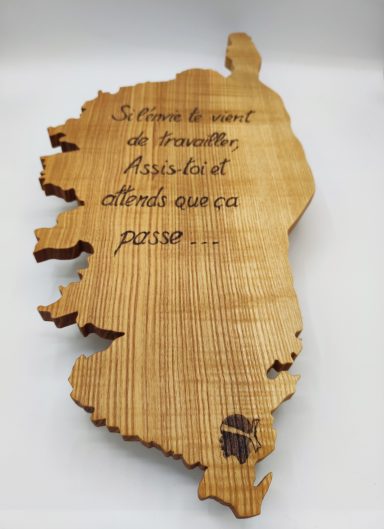 Si l'envie te vient
de travailler,
Assis-toi et
attends que ça
passe...